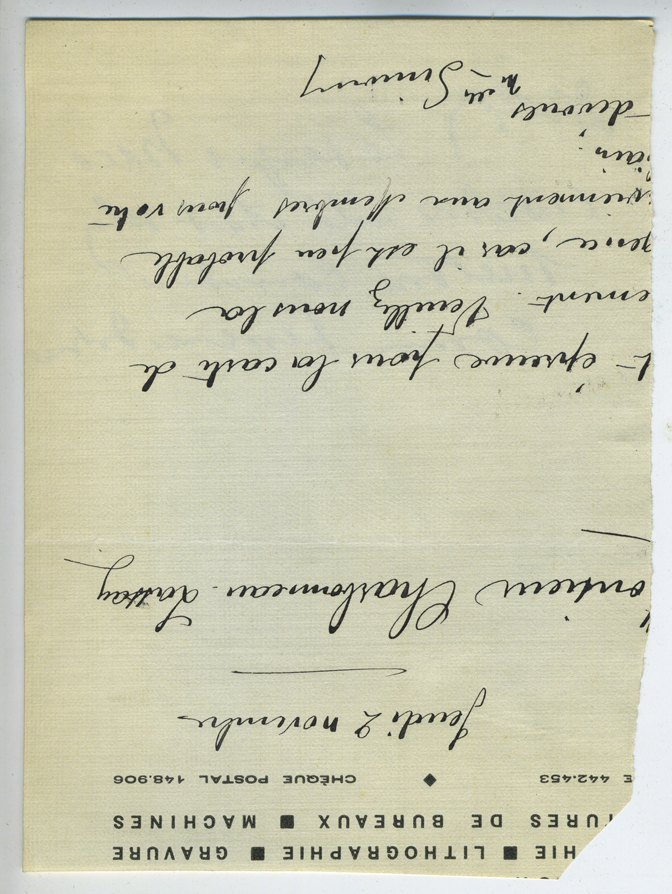 HIE ■ LITHOGRAPHIE ■ GRAVURE
TURES DE BUREAUX ■ MACHINES
E 442.453 ◆ CHÈQUE POSTAL 148.906
Jeudi 2 novembre
onsieur Charbonneau-Lassay
épreuve pour la carte de
ement. Veuillez nous la
gence, car il est peu probable
viennent aux Membres pour votre
devoués